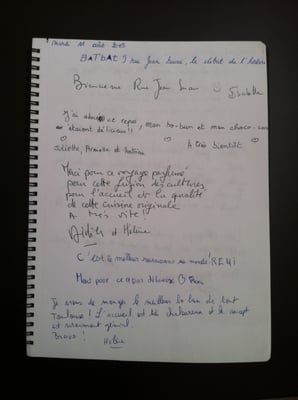 Mardi 11 août 2015
BATBAT 9 rue Jean Suau, le début de l'histoire
Bienvenue Rue Jean Suau
Isabelle
J'ai adoré ce repas
étaient délicieux !!, mon bo-bun et mon choco-coco
Juliette, Armelle et
A très bientôt
Merci pour ce voyage parfumé
pour cette fusion des cultures
pour l'accueil et la qualité
de cette cuisine originale
A très vite !
et Hélène
C'est le meilleur restaurant du monde ! REMI
Merci pour ce repas délicieux
Je viens de manger le meilleur bo bun de tout
Toulouse ! L'accueil est très chaleureux et le concept
est vraiment génial.
Bravo !
Héléna